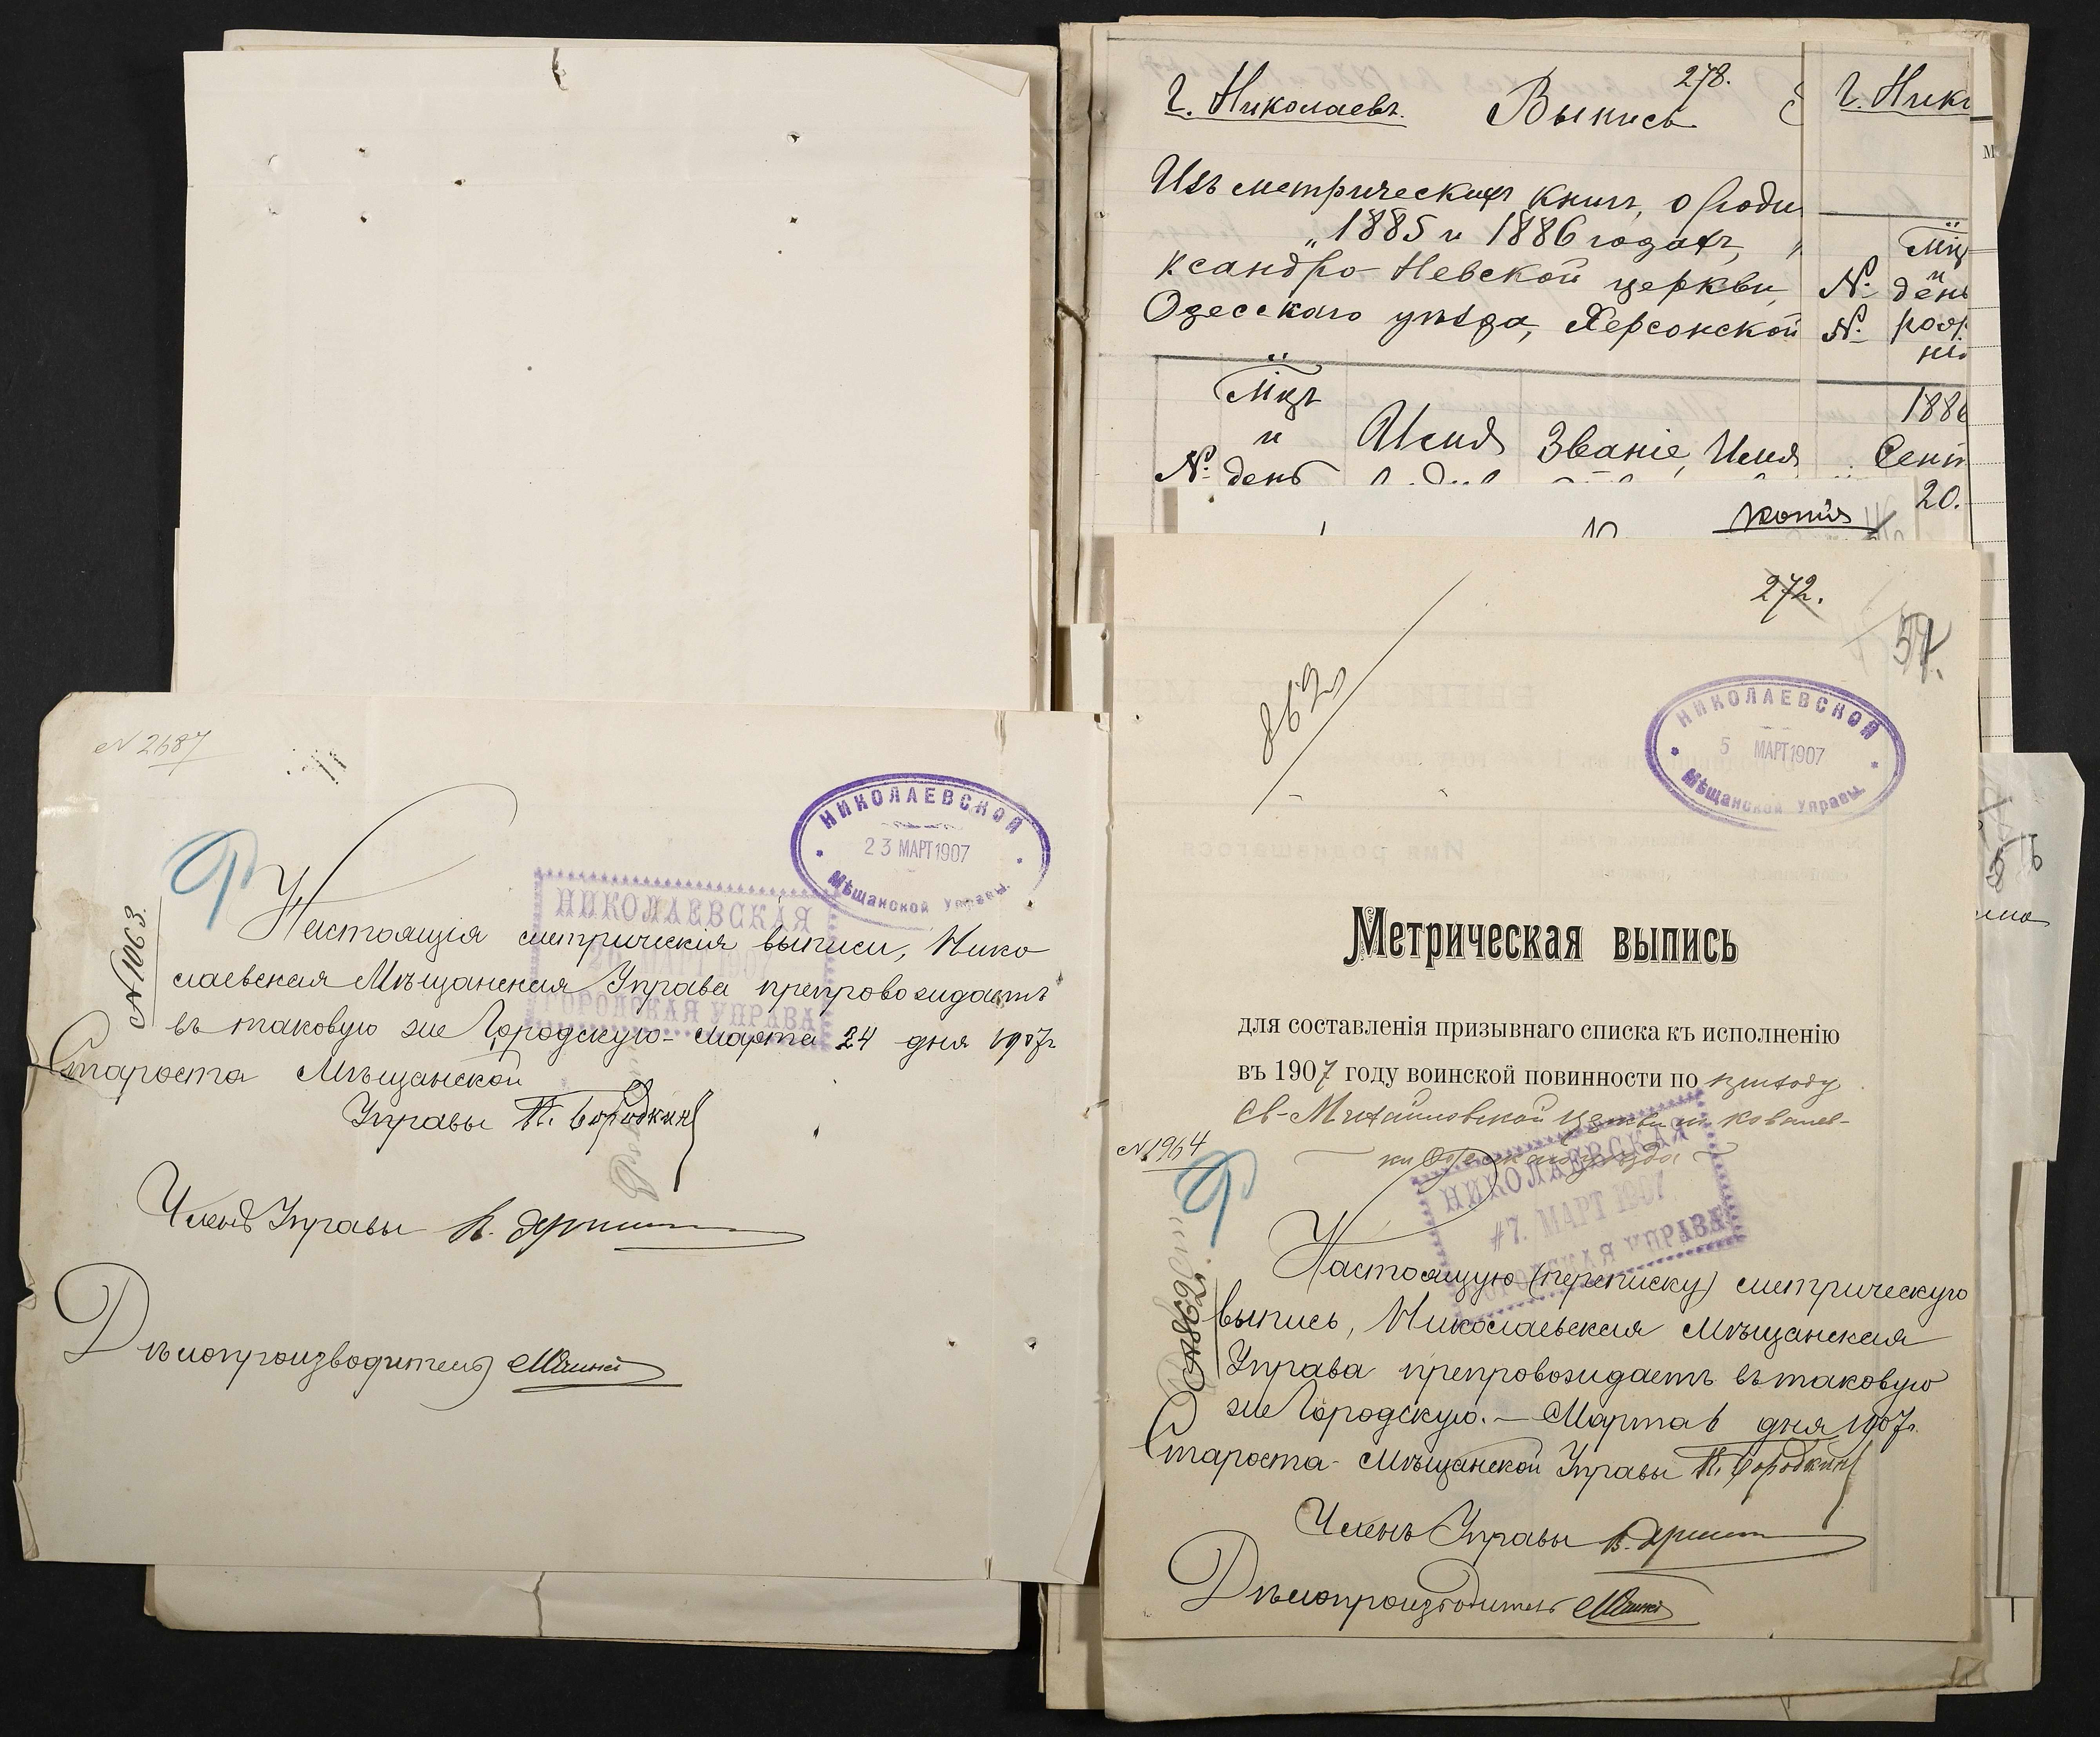 N 2687
НИКОЛАЕВСКОЙ
23 МАРТ 1907
Мѣщанской Управы.
НИКОЛАЕВСКАЯ
ГОРОДСКАЯ УПРАВА
N 1063.
Настоящія метрическія выписи, Нико
лаевская Мѣщанская Управа препровождаетъ
въ таковую же Городскую - Марта 24 дня 1907г
Староста Мѣщанской
Управы П. Бородкинъ
Членъ Управы
Дѣлопроизводитель
278.
г. Николаевъ. Выпись
Изъ метрическихъ книгъ, о роди
„1885 и 1886 годахъ, „
ксандро-Невской церкви,
Одесскаго уѣзда, Херсонской
Мцъ
и
№ день
Имя
Званіе, Имя
г. Нико
Мцъ
и
№ день
№ рож
1886
Сент
20.
копія
272.
57.
862
НИКОЛАЕВСКОЙ
5 МАРТ 1907
Мѣщанской Управы.
Метрическая выпись
для составленія призывнаго списка къ исполненію
въ 1907 году воинской повинности по приходу
Св-Михайловской Церкви с. Ковалев-
ки Одесскаго уѣзда
N 1964
НИКОЛАЕВСКАЯ
#7. МАРТ 1907
ГОРОДСКАЯ УПРАВА
N 862.
Настоящую (переписку) метрическую
выпись, Николаевская Мѣщанская
Управа препровождаетъ въ таковую
же Городскую. — Марта 6 дня 1907г.
Староста Мѣщанской Управы П. Бородкинъ
Членъ Управы
Дѣлопроизводитель